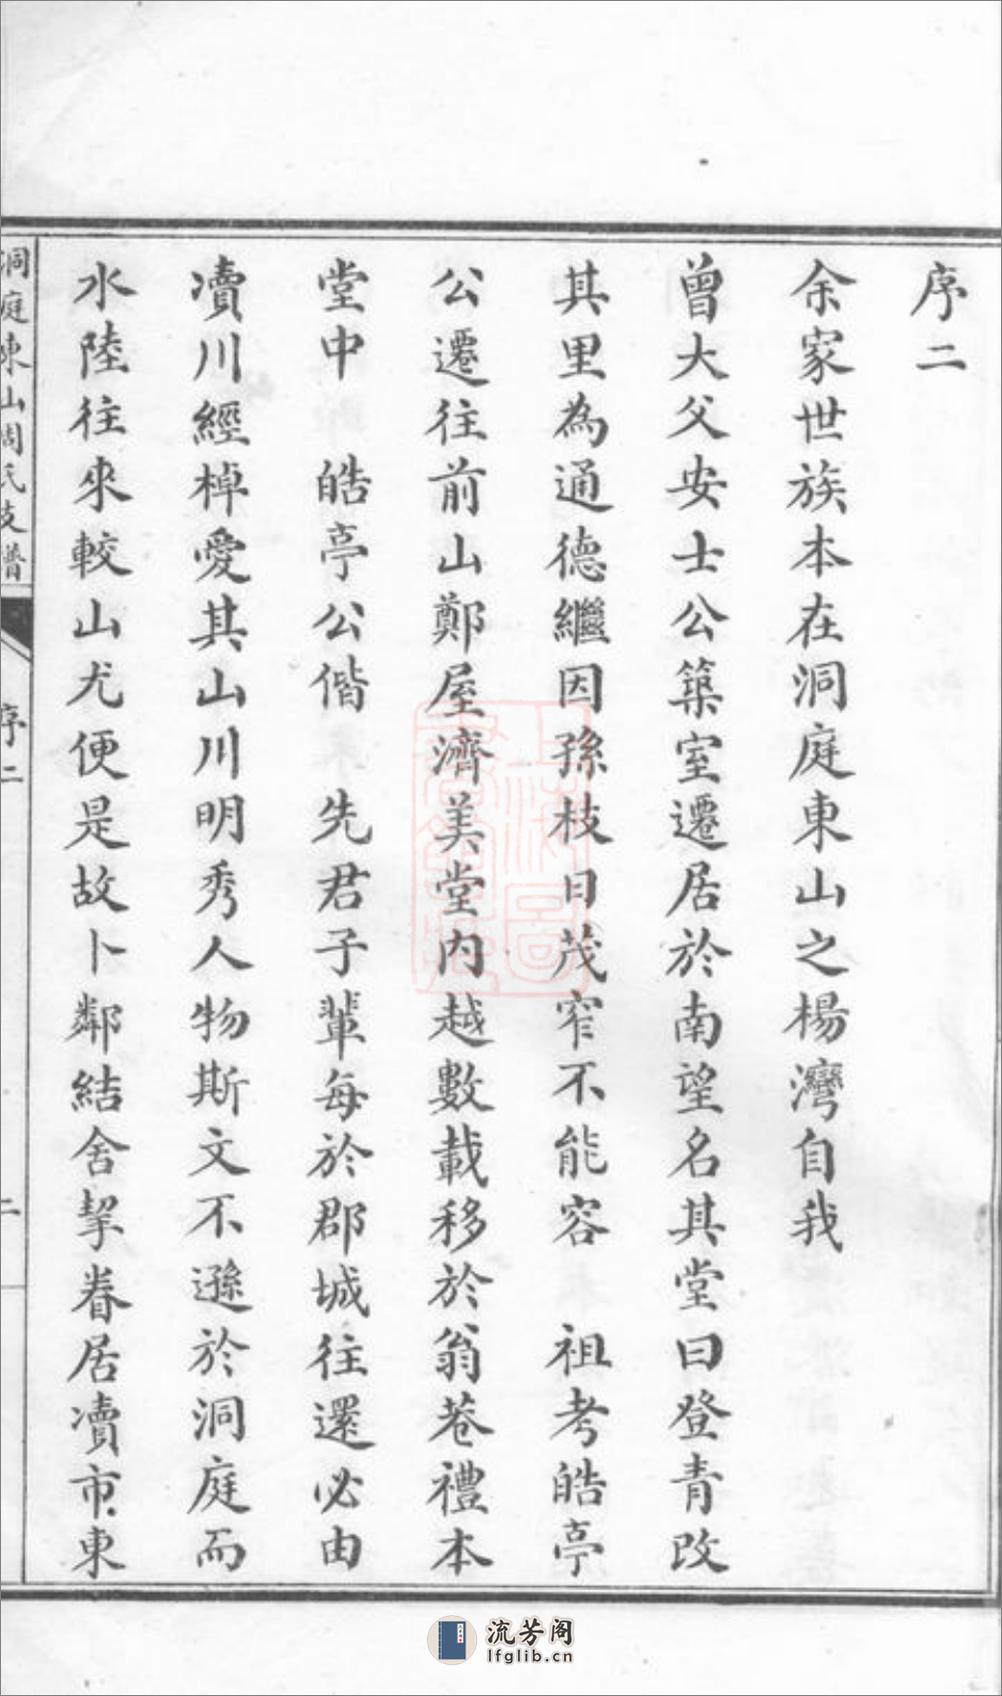 序二
余家世族本在洞庭東山之楊灣自我
曾大父安士公築室遷居於南望名其堂曰登青改
其里為通德繼因孫枝日茂窄不能容　祖考皓亭
公遷往前山鄭屋濟美堂內越數載移於翁巷禮本
堂中　皓亭公偕　先君子輩每於郡城往還必由
瀆川經棹愛其山川明秀人物斯文不遜於洞庭而
水陸往來較山尤便是故卜鄰結舍挈眷居瀆市東
洞庭東山周氏支譜
序二
二
上海圖書館藏
流芳阁
lfglib.cn